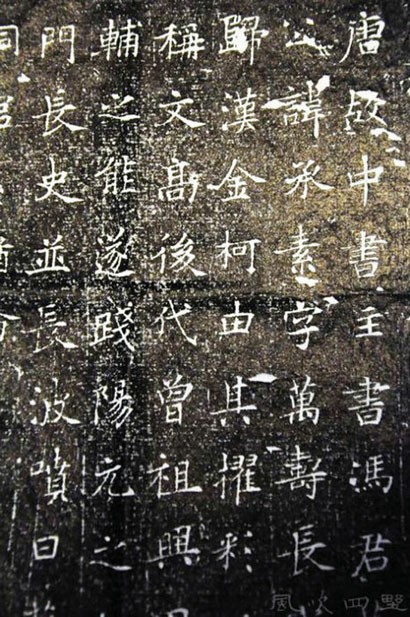 唐故中書主書馮君
公諱承素字萬壽長
歸漢金柯由其擢彩
稱文髙後代曾祖興
輔之能遂踐陽元之
門長史並長波噴日
風吹四墅